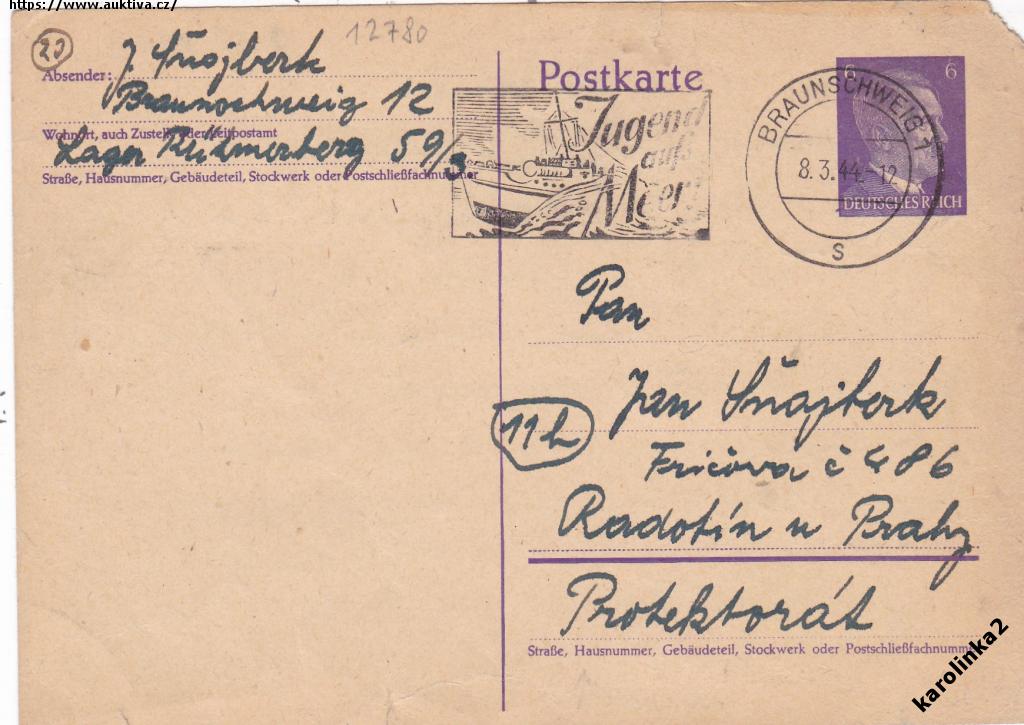 https://www.auktiva.cz/
12780
20
Absender: J. Šnajberk
Braunschweig 12
Wohnort, auch Zustell- oder Leitpostamt
Lager Rühmerberg 59/3
Straße, Hausnummer, Gebäudeteil, Stockwerk oder Postschließfachnummer
Postkarte
Jugend
aufs
Meer!
BRAUNSCHWEIG 1
8.3.44.-12
s
6 6
DEUTSCHES REICH
Pan
Jan Šnajberk
11b
Fričova č 486
Radotín u Prahy
Protektorát
Straße, Hausnummer, Gebäudeteil, Stockwerk oder Postschließfachnummer
karolinka2